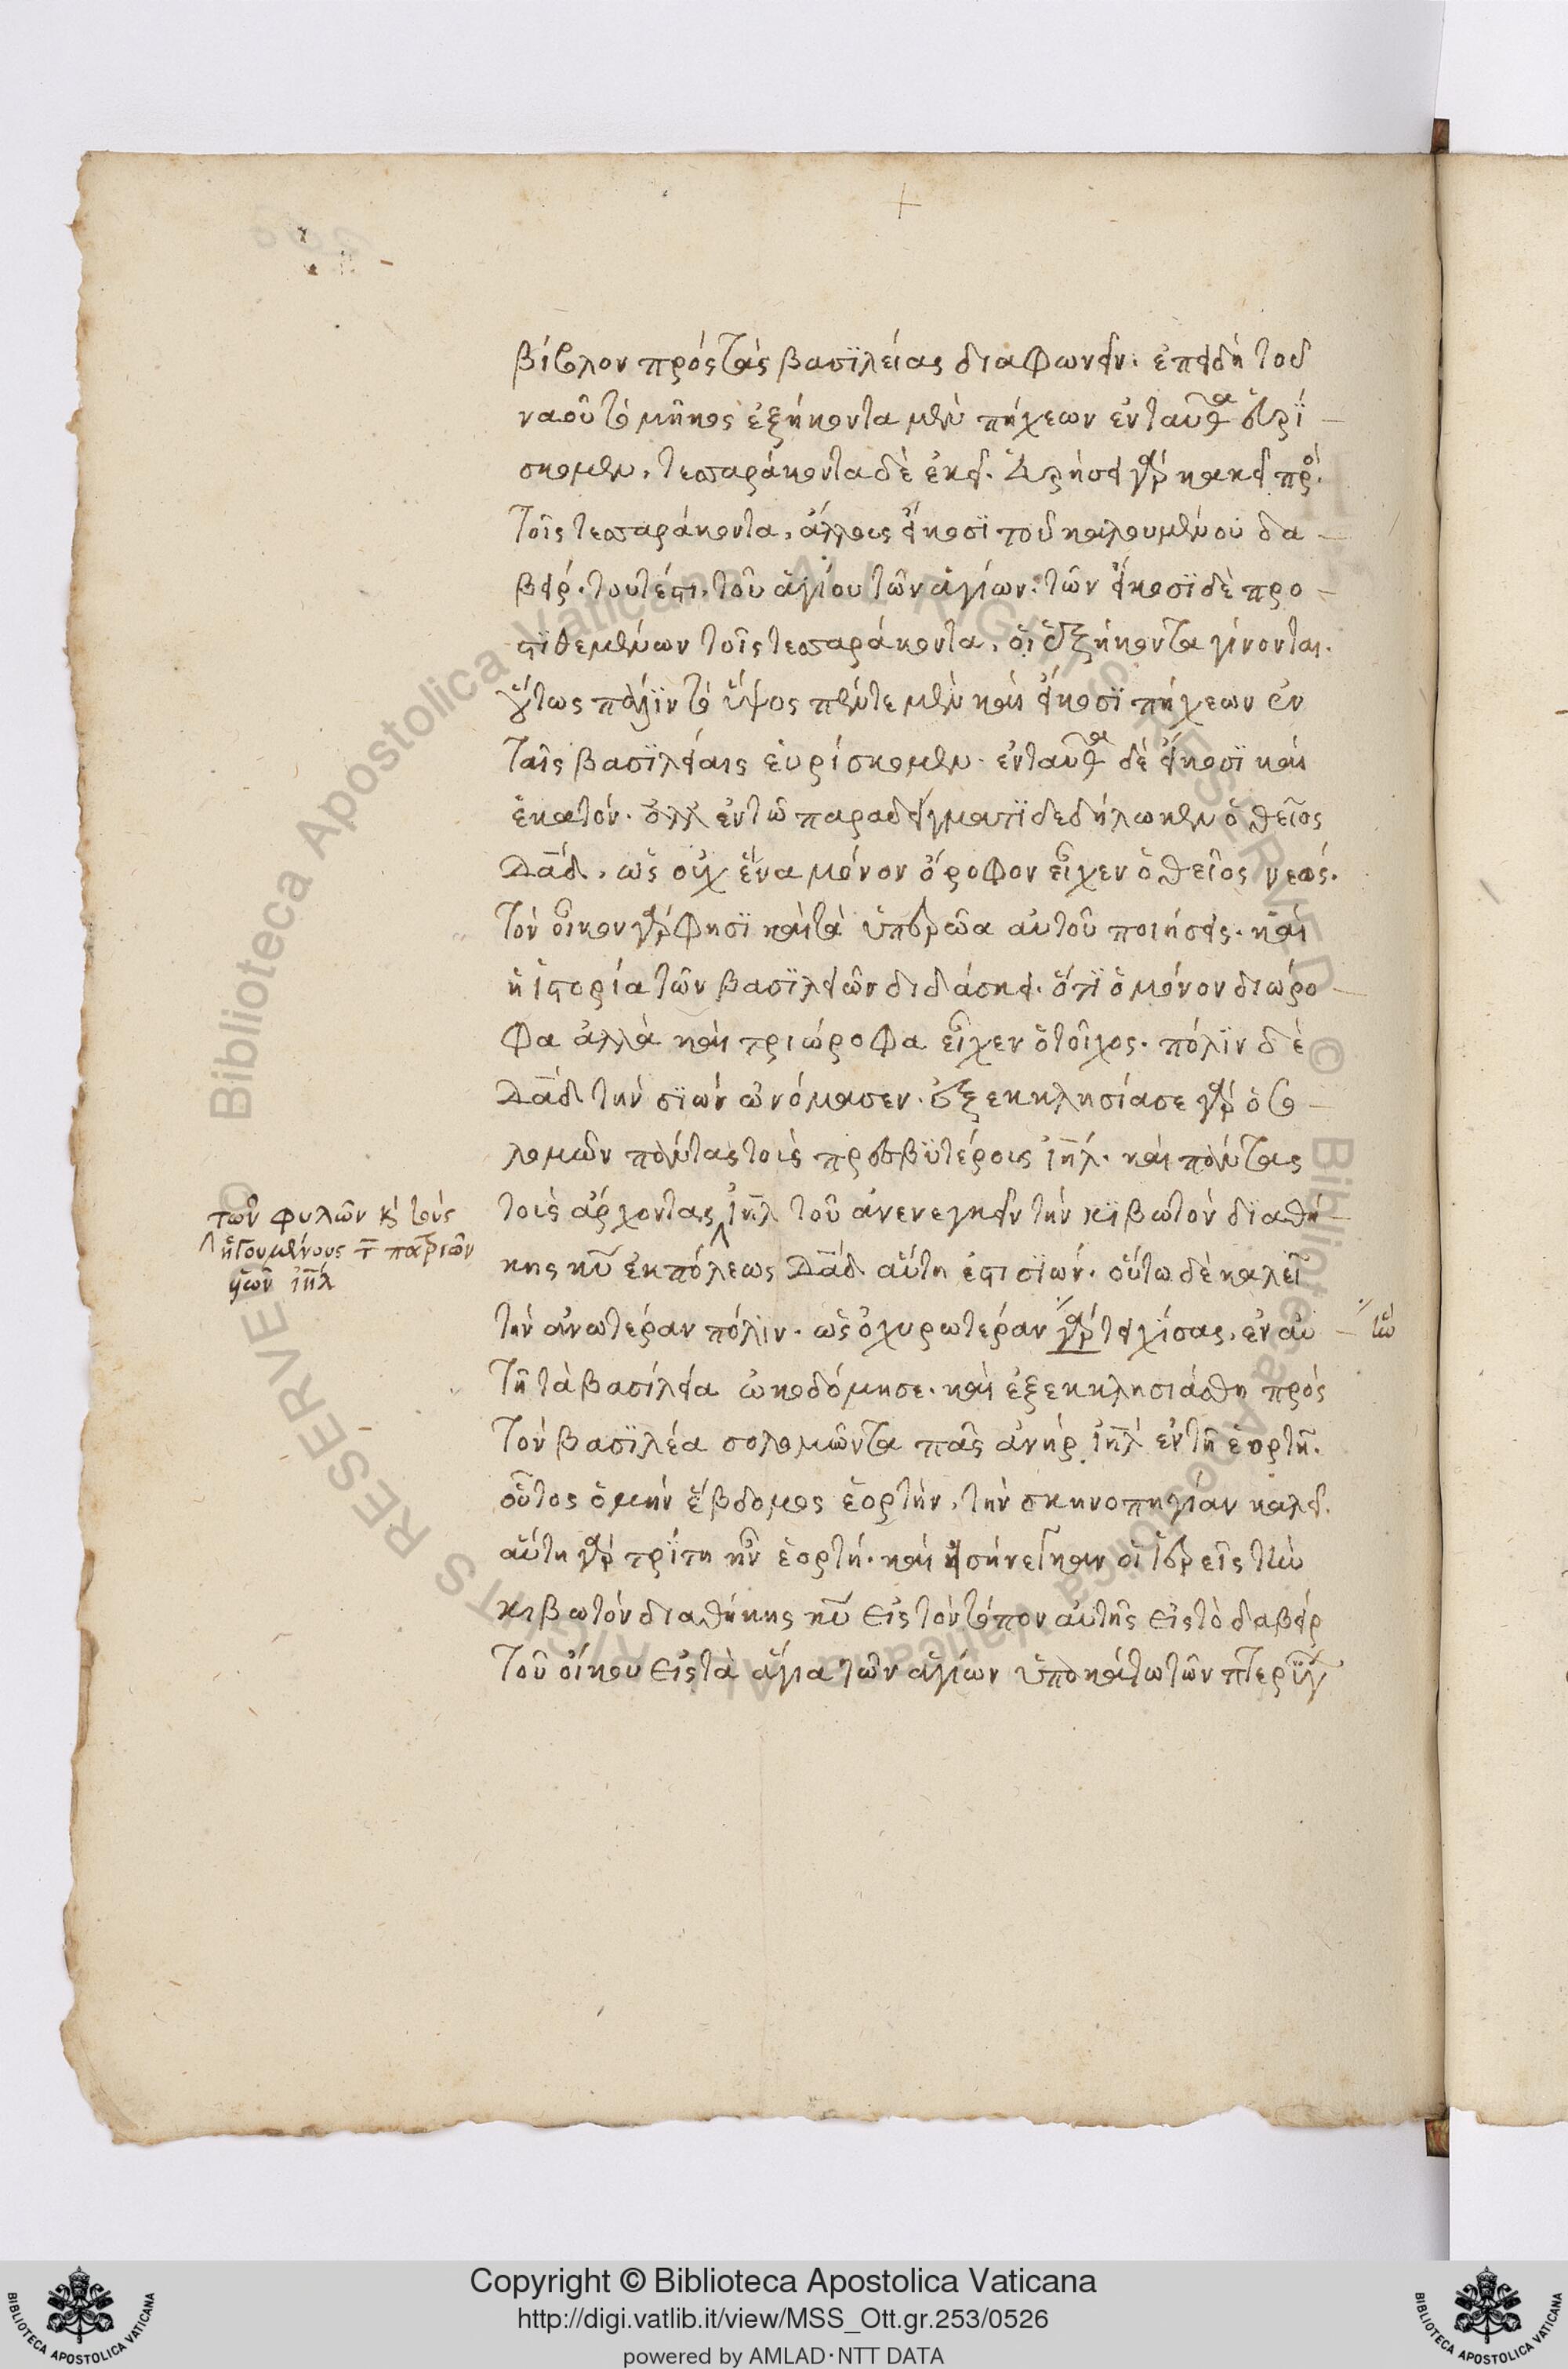 βίβλον πρὸς τὰς βασϊλείας διαφωνεῖν· ἐπειδὴ τοῦ
ναοῦ τὸ μῆκος ἑξήκοντα μὲν πήχεων ἐνταῦθα εὑρί
σκομεν, τεσσαράκοντα δὲ ἐκεῖ. γὰρ κακεῖ πρὸς
τοῖς τεσσαράκοντα, ἄλλους εἴκοσϊ τοῦ καλουμένου δα
βείρ· τουτέστι, τοῦ ἁγίου τῶν ἁγίων· τῶν εἴκοσϊ δὲ προ
στϊθεμένων τοῖς τεσσαράκοντα, οἱ ἑξήκοντα γίνονται.
οὕτως πάλϊν τὸ ὕψος πέντε μὲν καὶ εἴκοσϊ πήχεων ἐν
ταῖς βασϊλείαις εὑρίσκομεν· ἐνταῦθα δὲ εἴκοσϊ καὶ
ἑκατόν· ἀλλ ἐν τῶ παραδείγματϊ δεδήλωκεν ὁ θεῖος
Δᾱδ, ὡς οὐχ ἕνα μόνον ὄροφον εἶχεν ὁ θεῖος νεώς.
τὸν οἶκον γάρ φησϊ καὶ τὰ ὑπερῶα αὐτοῦ ποιήσεις· καὶ
ἡ ἱστορία τῶν βασϊλειῶν διδάσκει· ὅτϊ ὀ μόνον διώρο
φα ἀλλὰ καὶ τριώροφα εἶχεν ὁ τοῖχος· πόλϊν δὲ
Δᾱδ τὴν σϊὼν ὠνόμασεν· ἐξεκκλησίασε γὰρ ὁ σο
λομῶν πάντας τοὶς πρεσβϋτέροις ἰηλ· καὶ πάντας
τοὶς ἄρχοντας ἰηλ τοῦ ἀνενεγκεῖν τὴν κϊβωτὸν δϊαθή
κης κυ ἐκ πόλεως Δᾱδ αὕτη ἐστι σϊών· οὕτω δὲ καλεῖ
τὴν ἀνωτέραν πόλϊν· ὡς ὀχυρωτέραν γὰρ τειχίσας, ἐν αὐ
τῆ τὰ βασίλεια ὠκοδόμησε· καὶ ἐξεκκλησιάσθη πρὸς
τὸν βασϊλέα σολομῶντα πᾶς ἀνὴρ ἰηλ ἐν τῆ ἑορτῆ.
οὗτος ὁ μὴν ἕβδομος ἑορτὴν, τὴν σκηνοπηγίαν καλεῖ.
αὕτη γὰρ τρίτη ἦν ἑορτή· καὶ εἰσήνεγκαν οἱ ἱερεῖς τὴν
κιβωτὸν διαθήκης κυ εἰς τὸν τόπον αὐτῆς εἰς τὸ δαβείρ
τοῦ οἴκου εἰς τὰ ἅγια τῶν ἁγίων ὑποκάτω τῶν πτερϋγ
τῶν φυλῶν κ τοὺς
ἡγουμένους τ πατριῶν
υἱῶν ἰηλ